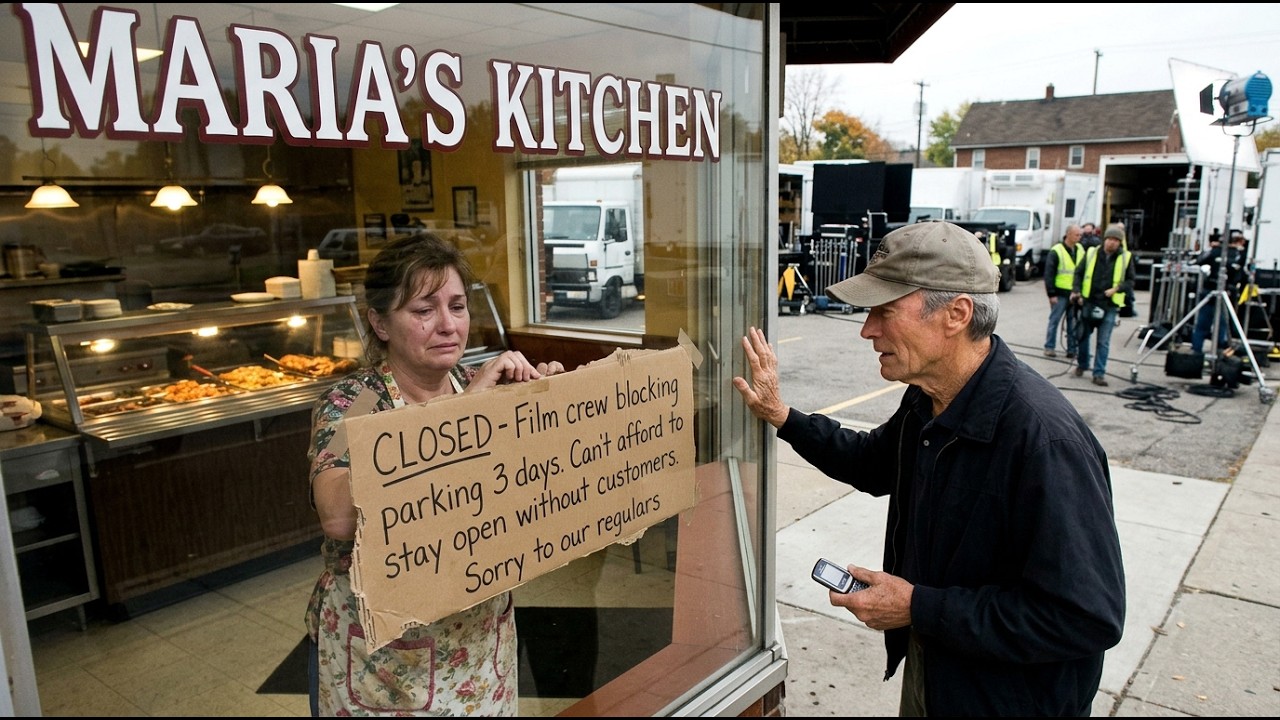 MARIA'S KITCHEN
CLOSED - Film crew blocking
parking 3 days. Can't afford to
stay open without customers.
Sorry to our regulars